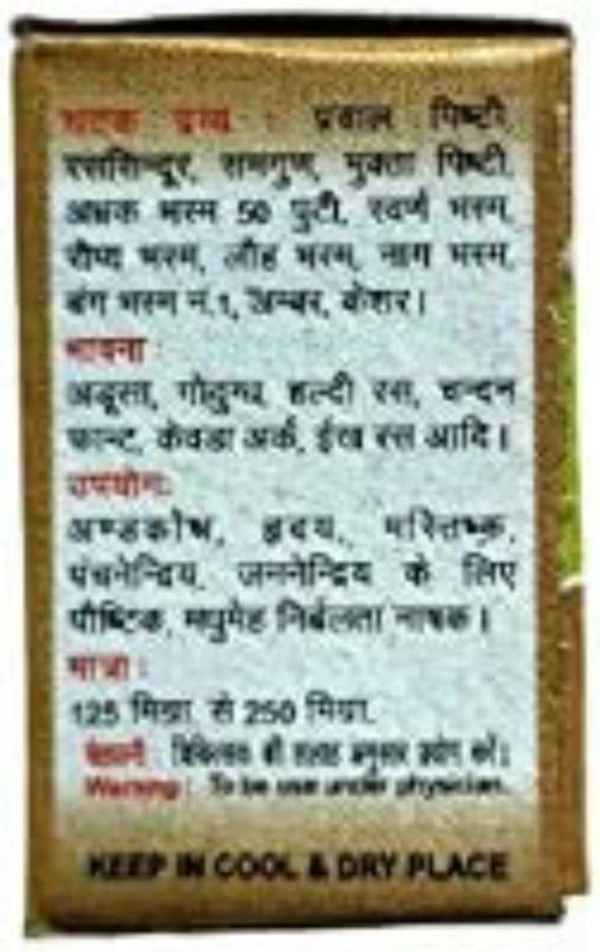 घटक द्रव्य : प्रवाल पिष्टी,
रससिन्दूर, समगुण, मुक्ता पिष्टी,
अभ्रक भस्म 50 पुटी, स्वर्ण भस्म,
रौप्य भस्म, लौह भस्म, नाग भस्म,
बंग भस्म नं.1, अम्बर, केशर।
भावना :
अडूसा, गोदुग्ध, हल्दी रस, चन्दन
फान्ट, केवडा अर्क, ईख रस आदि।
उपयोग:
अण्डकोष, हृदय, मस्तिष्क,
पंचनेन्द्रिय, जननेन्द्रिय के लिए
पौष्टिक, मधुमेह निर्बलता नाशक।
मात्रा :
125 मिग्रा. से 250 मिग्रा.
चेतावनी : चिकित्सक की सलाह अनुसार प्रयोग करें।
Warning : To be use under physician.
KEEP IN COOL & DRY PLACE